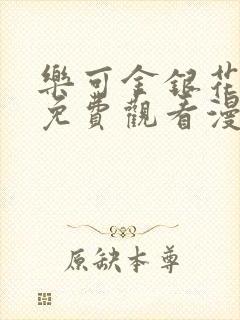 樂可金銀花
免費觀看漫
原缺本尊